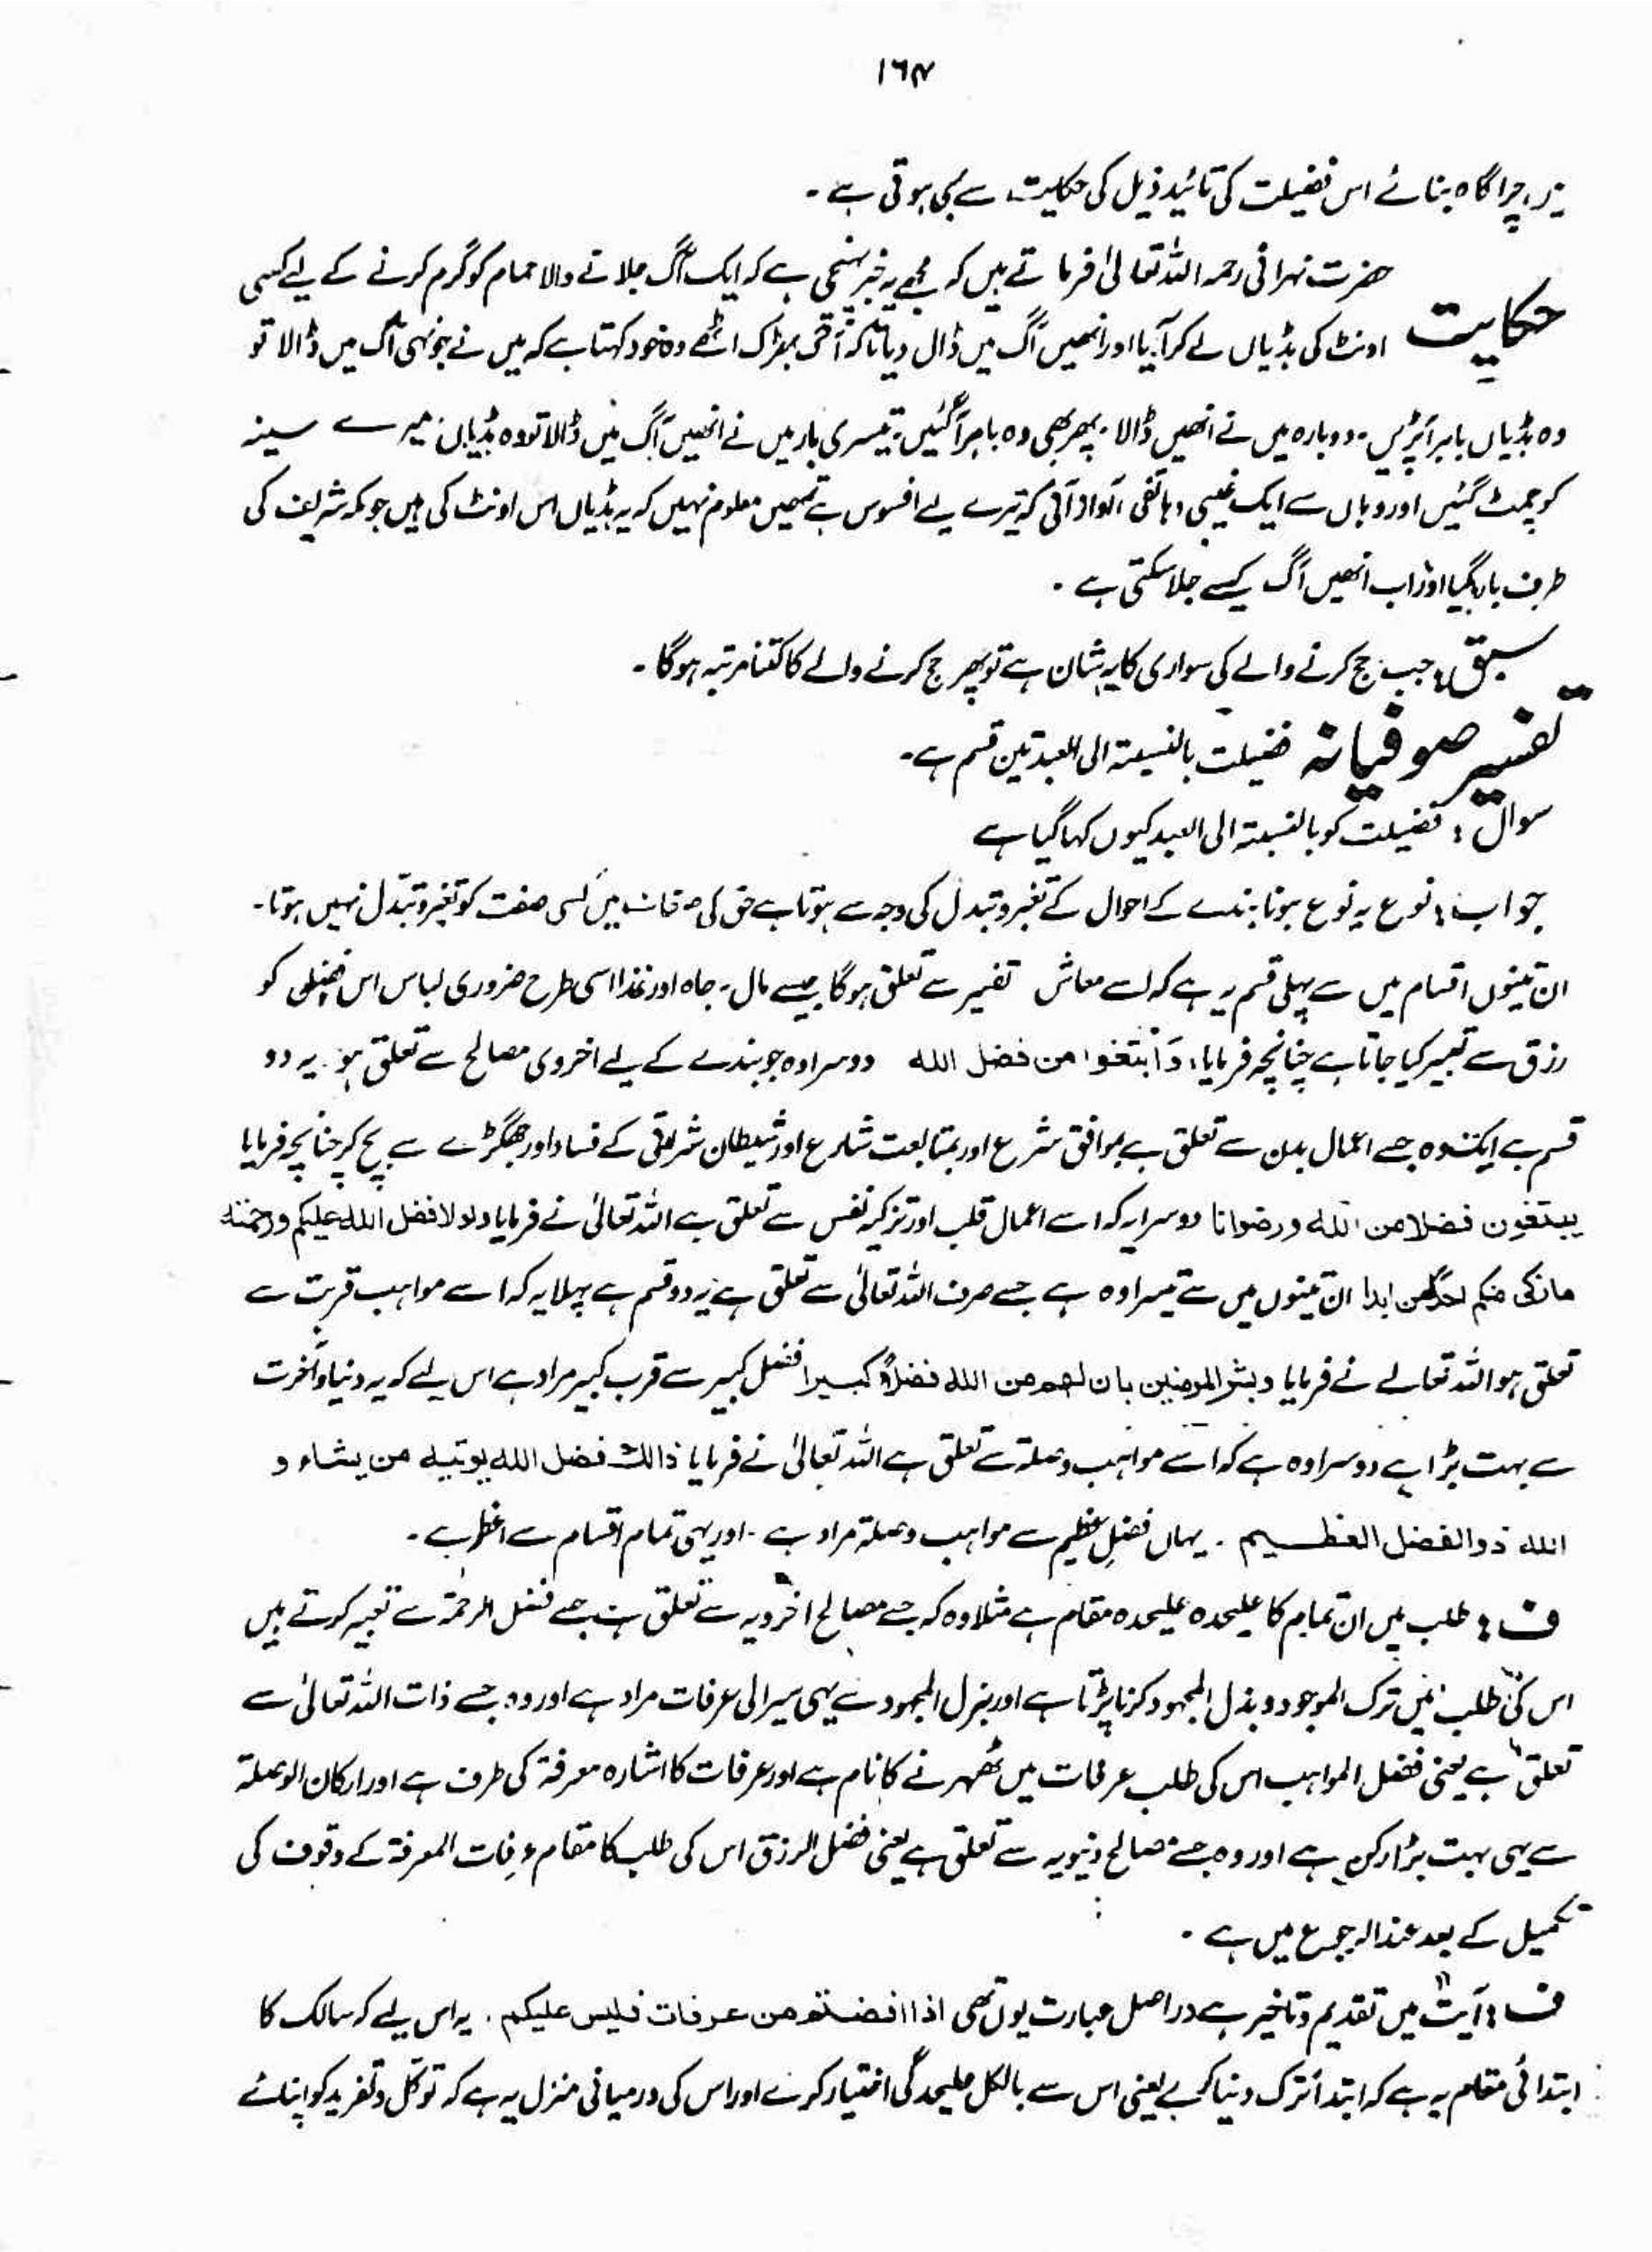 ۱۶۴
چراگاہ بنائے اس فضیلت کی تائید ذیل کی حکایت سے بھی ہوتی ہے ۔
حکایت حضرت نہرانی رحمہ اللہ تعالیٰ فرماتے ہیں کہ مجھے یہ خبر پہنچی ہے کہ ایک آگ جلانے والا حمام کو گرم کرنے کے لیے کسی
اونٹ کی ہڈیاں لے کر آیا اور انھیں آگ میں ڈال دیا تاکہ آتش بھڑک اٹھے وہ خود کہتا ہے کہ میں نے جونہی آگ میں ڈالا تو
وہ ہڈیاں باہر آ پڑیں ۔ دوبارہ میں نے انھیں ڈالا ۔ پھر بھی وہ باہر آگئیں ۔ تیسری بار میں نے انھیں آگ میں ڈالا تو وہ ہڈیاں میرے سینہ
کو چمٹ گئیں اور وہاں سے ایک غیبی دہاتفی آواز آئی کہ تیرے لیے افسوس ہے تمھیں معلوم نہیں کہ یہ ہڈیاں اس اونٹ کی ہیں جو مکہ شریف کی
طرف بارہا گیا اور اب انھیں آگ کیسے جلا سکتی ہے ۔
سبق : جب حج کرنے والے کی سواری کا یہ شان ہے تو پھر حج کرنے والے کا کتنا مرتبہ ہوگا ۔
تفسیر صوفیانہ فضیلت بالنسبتہ الی العبد تین قسم ہے ۔
سوال : فضیلت کو بالنسبتہ الی العبد کیوں کہا گیا ہے
جواب : نوع بہ نوع ہونا بندے کے احوال کے تغیر و تبدل کی وجہ سے ہوتا ہے حق کی صفات میں کسی صفت کو تغیر و تبدل نہیں ہوتا ۔
ان تینوں اقسام میں سے پہلی قسم یہ ہے کہ اسے معاش تفسیر سے تعلق ہوگا جیسے مال ۔ جاہ اور غذا اسی طرح ضروری لباس اس فضیلی کو
رزق سے تعبیر کیا جاتا ہے چنانچہ فرمایا : وَابتغوا من فضل اللہ دوسرا وہ جو بندے کے لیے اخروی مصالح سے تعلق ہو ۔ یہ دو
قسم ہے ایک وہ جسے اعمال بدن سے تعلق ہے بموافق شرع اور بمتابعت شارع اور شیطان شرقی کے فساد اور جھگڑے سے بچ کر چنانچہ فرمایا
یبتغون فضلا من اللہ ورضوانا دوسرا یہ کہ اسے اعمال قلب اور تزکیہ نفس سے تعلق ہے اللہ تعالیٰ نے فرمایا ولولا فضل اللہ علیکم ورحمتہ
مازکی منکم احد من ابدا ان تینوں میں سے تیسرا وہ ہے جسے صرف اللہ تعالیٰ سے تعلق ہے یہ دو قسم ہے پہلا یہ کہ اسے مواہب قربت سے
تعلق ہو اللہ تعالےٰ نے فرمایا وبشر المومنین بان لھم من اللہ فضلاً کبیرا فضل کبیر سے قرب کبیر مراد ہے اس لیے کہ یہ دنیا و آخرت
سے بہت بڑا ہے دوسرا وہ ہے کہ اسے مواہب وصلتہ سے تعلق ہے اللہ تعالیٰ نے فرمایا ذالک فضل اللہ یوتیہ من یشاء و
اللہ ذوالفضل العظیم ۔ یہاں فضلِ عظیم سے مواہب وصلتہ مراد ہے ۔ اور یہی تمام اقسام سے اعظم ہے ۔
ف : طلب میں ان تمام کا علیحدہ علیحدہ مقام ہے مثلا وہ کہ جسے مصالح اخرویہ سے تعلق ہے جسے فضل الرحمۃ سے تعبیر کرتے ہیں
اس کی طلب میں ترک الموجود و بذل المجہود کرنا پڑتا ہے اور بذل المجہود سے یہی سیر الی عرفات مراد ہے اور وہ جسے ذات اللہ تعالیٰ سے
تعلق ہے یعنی فضل المواہب اس کی طلب عرفات میں ٹھہرنے کا نام ہے اور عرفات کا اشارہ معرفۃ کی طرف ہے اور ارکان الوصلۃ
سے یہی بہت بڑا رکن ہے اور وہ جسے مصالح دنیویہ سے تعلق ہے یعنی فضل الرزق اس کی طلب کا مقام عرفات المعرفۃ کے وقوف کی
تکمیل کے بعد عند الرجوع میں ہے ۔
ف : آیت میں تقدیم و تاخیر ہے دراصل عبارت یوں تھی اذا افضتم من عرفات فلیس علیکم ۔ یہ اس لیے کہ سالک کا
ابتدائی مقام یہ ہے کہ ابتداً ترک دنیا کرے یعنی اس سے بالکل علیحدگی اختیار کرے اور اس کی درمیانی منزل یہ ہے کہ توکل و تفرید کو اپنائے